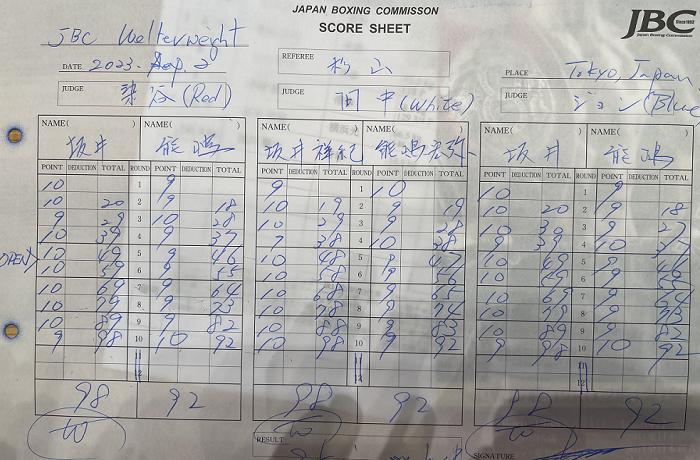 JAPAN BOXING COMMISSON
SCORE SHEET
JBC
Since 1952
Japan Boxing Commission
JBC Welterweight
DATE 2023. Sep. 2
REFEREE 杉山
PLACE Tokyo, Japan
JUDGE 染谷 (Red)
JUDGE 田中 (White)
JUDGE ジョン (Blue
NAME( ) NAME( ) NAME( ) NAME( ) NAME( ) NAME( )
坂井 能嶋 坂井祥紀 能嶋宏弥 坂井 能嶋
POINT DEDUCTION TOTAL ROUND POINT DEDUCTION TOTAL POINT DEDUCTION TOTAL ROUND POINT DEDUCTION TOTAL POINT DEDUCTION TOTAL ROUND POINT DEDUCTION TOTAL
10 1 9 9 1 10 10 1 9
10 20 2 9 18 10 19 2 9 19 10 20 2 9 18
9 29 3 10 28 10 29 3 9 28 10 3 9 27
10 39 4 9 37 9 38 4 10 38 9 39 4 10 37
OPEN> 10 49 5 9 46 10 48 5 9 47 10 49 5 9 46
10 59 6 9 55 10 58 6 9 10 59 6 9
10 69 7 9 64 10 68 7 9 65 10 69 7 9 64
10 79 8 9 73 10 78 8 9 74 10 79 8 9 73
10 89 9 9 82 10 88 9 9 83 10 89 9 9 82
9 98 10 10 92 10 98 10 9 92 9 98 10 10 92
11 11 11
12 12 12
98 92 98 92 92
RESULT
SIGNATURE